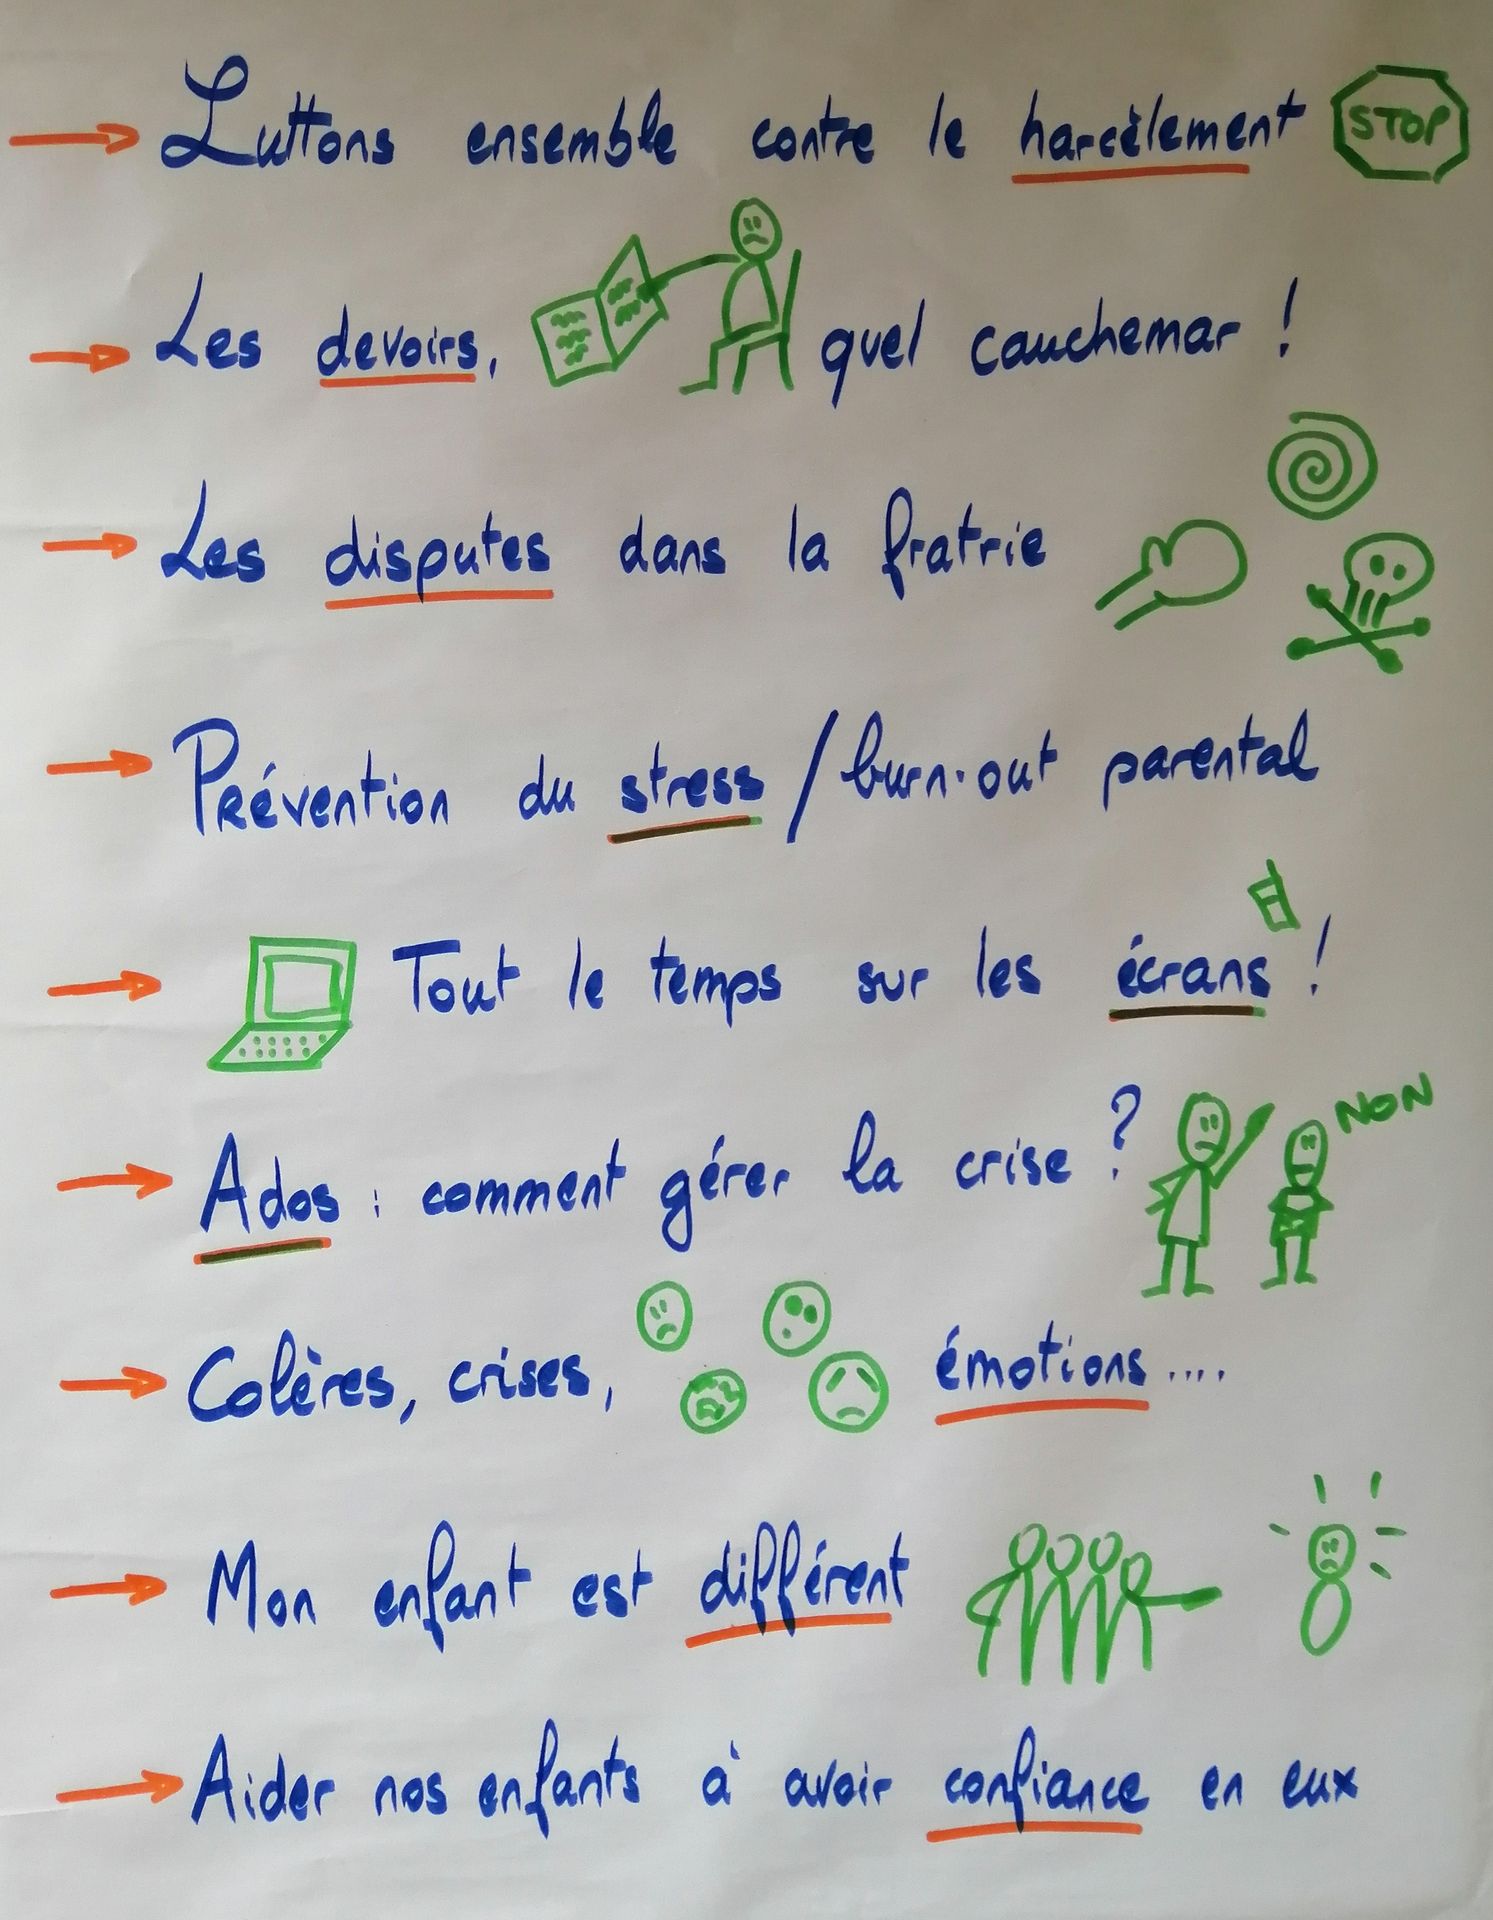 Luttons ensemble contre le harcèlement STOP
Les devoirs, quel cauchemar !
Les disputes dans la fratrie
Prévention du stress / burn-out parental
Tout le temps sur les écrans !
Ados : comment gérer la crise ? NON
Colères, crises, émotions ....
Mon enfant est différent
Aider nos enfants à avoir confiance en eux